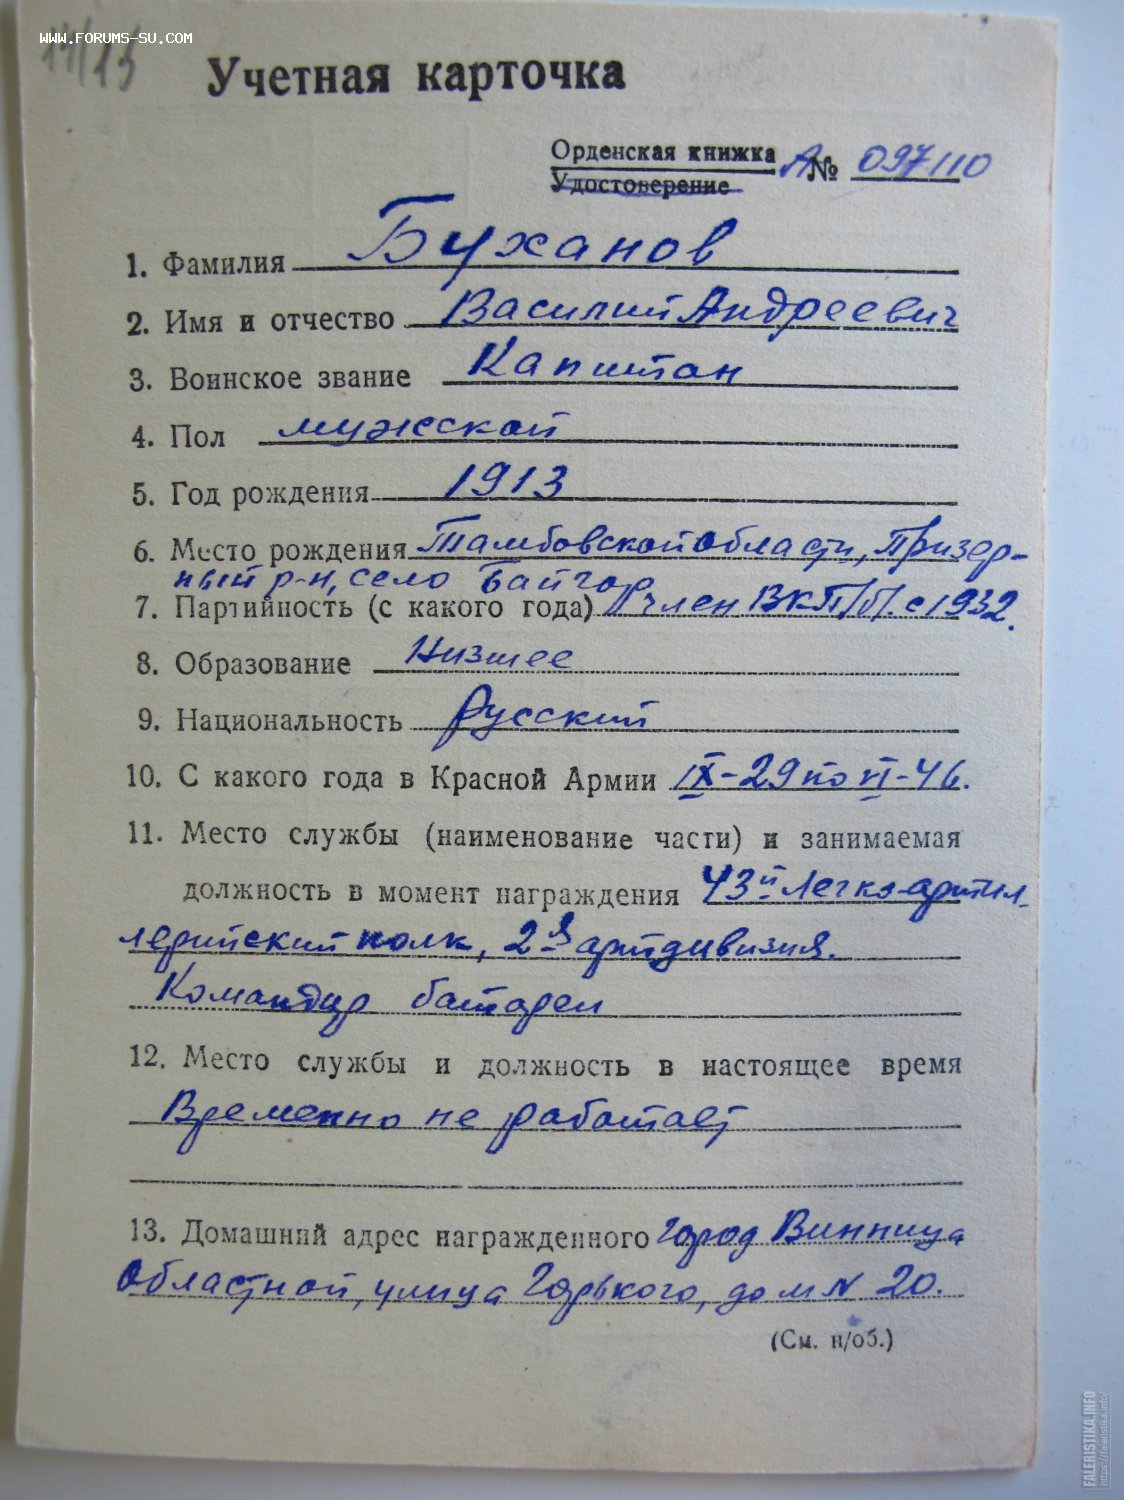 www.forums-su.com
Учетная карточка
Орденская книжка А№ 097110
Удостоверение
1. Фамилия Буханов
2. Имя и отчество Василий Андреевич
3. Воинское звание Капитан
4. Пол мужской
5. Год рождения 1913
6. Место рождения Тамбовской области, Призер-
ный р-н, село Байгор
7. Партийность (с какого года) член ВКП/б/. с 1932.
8. Образование Низшее
9. Национальность русский
10. С какого года в Красной Армии IX-29 по VI-46.
11. Место службы (наименование части) и занимаемая
должность в момент награждения 43й Легко-артил-
лерийский полк, 2я артдивизия.
Командир батареи
12. Место службы и должность в настоящее время
Временно не работает
13. Домашний адрес награжденного город Винница
областной, улица Горького, дом № 20.
(См. н/об.)
FALERISTIKA.INFO
https://faleristika.info/